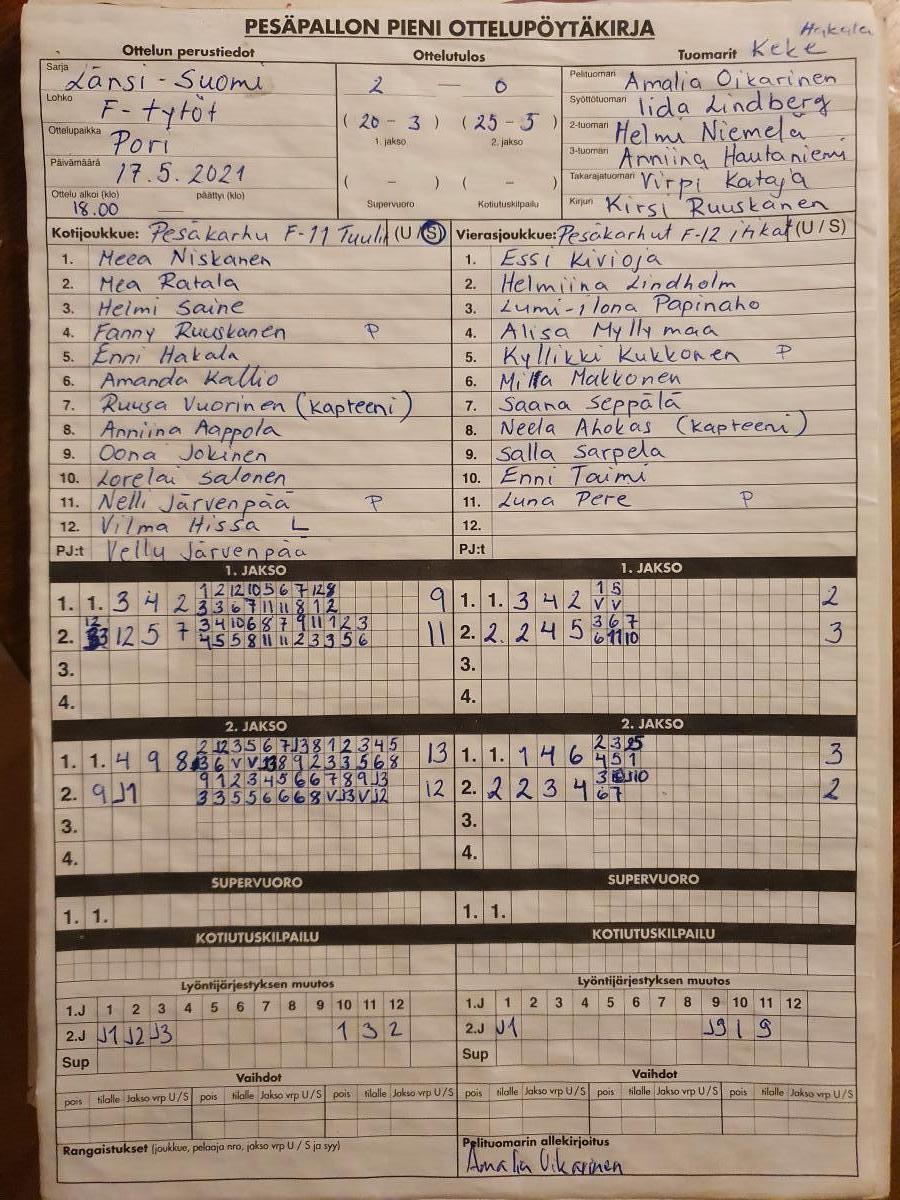 PESÄPALLON PIENI OTTELUPÖYTÄKIRJA
Hakala
Ottelun perustiedot
Sarja
Länsi-Suomi
Lohko
F-tytöt
Ottelupaikka
Pori
Päivämäärä
17.5.2021
Ottelu alkoi (klo) päättyi (klo)
18.00
Ottelutulos
2 — 0
(20 - 3) (25 - 5)
1. jakso 2. jakso
( - ) ( - )
Supervuoro Kotiutuskilpailu
Tuomarit Keke
Pelituomari Amalia Oikarinen
Syöttötuomari Iida Lindberg
2-tuomari Helmi Niemelä
3-tuomari Anniina Hautaniemi
Takarajatuomari Virpi Kataja
Kirjuri Kirsi Ruuskanen
Kotijoukkue: Pesäkarhu F-11 Tuulit (U/S)
1. Meea Niskanen
2. Mea Ratala
3. Helmi Saine
4. Fanny Ruuskanen P
5. Enni Hakala
6. Amanda Kallio
7. Ruusa Vuorinen (kapteeni)
8. Anniina Aappola
9. Oona Jokinen
10. Lorelai Salonen
11. Nelli Järvenpää P
12. Vilma Hissa L
PJ:t Velly Järvenpää
Vierasjoukkue: Pesäkarhut F-12 itikat (U/S)
1. Essi Kivioja
2. Helmiina Lindholm
3. Lumi-ilona Papinaho
4. Alisa Myllymaa
5. Kyllikki Kukkonen P
6. Milla Makkonen
7. Saana Seppälä
8. Neela Ahokas (kapteeni)
9. Salla Sarpela
10. Enni Taimi
11. Luna Pere P
12.
PJ:t
1. JAKSO
1 2 12 10 5 6 7 12 8
1. 1. 3 4 2 3 3 6 7 11 11 8 1 2 9
3 4 10 6 8 7 9 11 1 2 3
2. 12 5 7 4 5 5 8 11 11 2 3 3 5 6 11
3.
4.
1. JAKSO
1 5
1. 1. 3 4 2 V V 2
3 6 7
2. 2. 2 4 5 6 11 10 3
3.
4.
2. JAKSO
1. 1. 4 9 8 13
9 1 2 3 4 5 6 6 7 8 9 J3
2. 9 J1 3 3 5 5 6 6 6 8 V J3 V J2 12
3.
4.
2. JAKSO
1. 1. 1 4 6 4 5 1 3
2. 2 2 3 4 6 7 2
3.
4.
SUPERVUORO
1. 1.
SUPERVUORO
1. 1.
KOTIUTUSKILPAILU
KOTIUTUSKILPAILU
Lyöntijärjestyksen muutos
1.J 1 2 3 4 5 6 7 8 9 10 11 12
2.J J1 J2 J3 1 3 2
Sup
Lyöntijärjestyksen muutos
1.J 1 2 3 4 5 6 7 8 9 10 11 12
2.J J1 J9 1 9
Sup
Vaihdot
pois tilalle Jakso vrp U/S pois tilalle Jakso vrp U/S pois tilalle Jakso vrp U/S
Vaihdot
pois tilalle Jakso vrp U/S pois tilalle Jakso vrp U/S pois tilalle Jakso vrp U/S
Rangaistukset (joukkue, pelaaja nro, jakso vrp U / S ja syy)
Pelituomarin allekirjoitus
Amalia Oikarinen